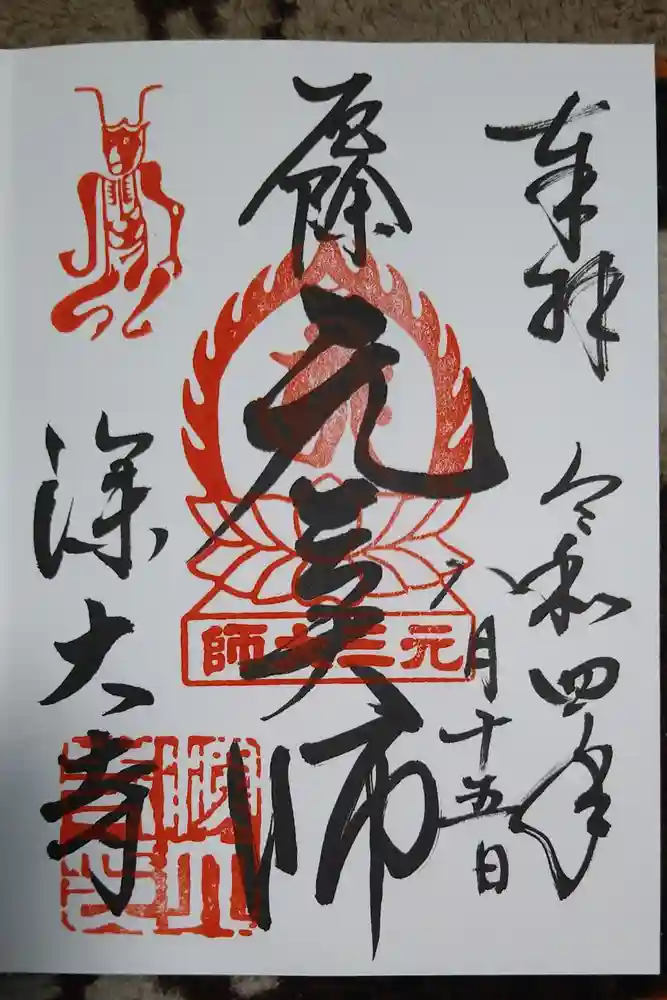 奉拝 令和四年
八月十五日
厄除 元三大師
師大三元
深大寺